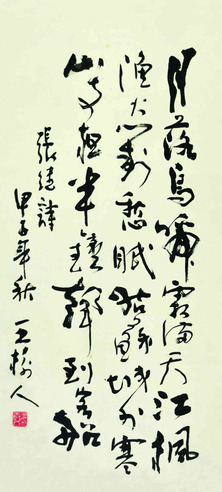 月落烏啼霜滿天江楓
漁火對愁眠姑蘇城外寒
山寺夜半鐘聲到客船
張繼詩
甲子年秋